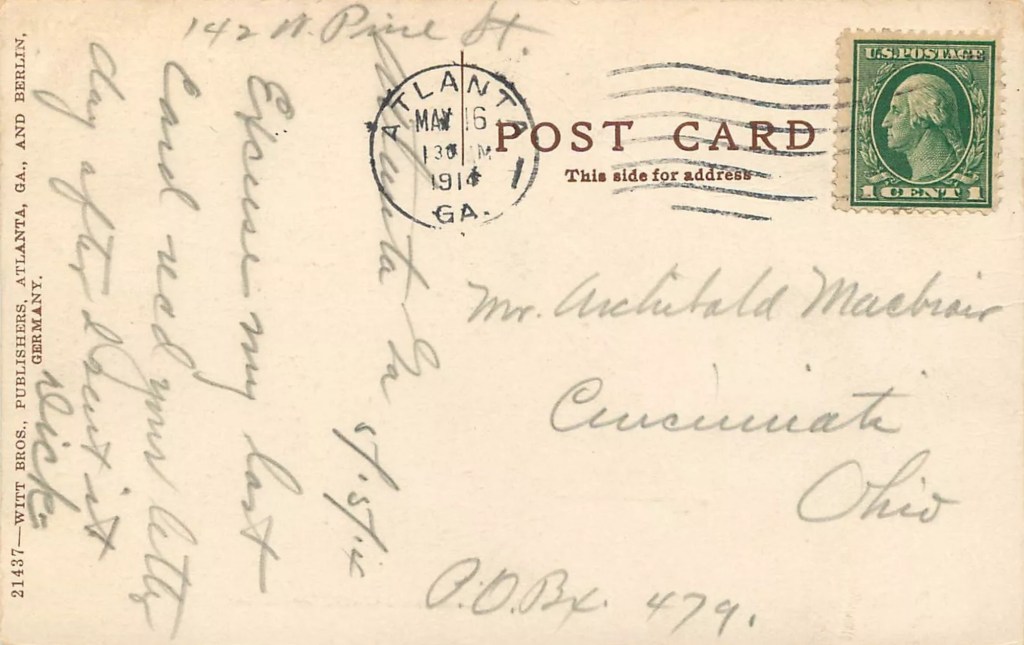 142 W. Pine St.
Atlanta Ga
5/15/14
Excuse my last
Card rec'd your letter
day after I sent it
Dick
21437—WITT BROS., PUBLISHERS, ATLANTA, GA., AND BERLIN,
GERMANY.
ATLANTA
MAY 16
130 AM
1914
GA.
1
POST CARD
This side for address
U.S. POSTAGE
1 CENT 1
Mr. Archibald Macbriair
Cincinnati
Ohio
P.O. Bx. 479.